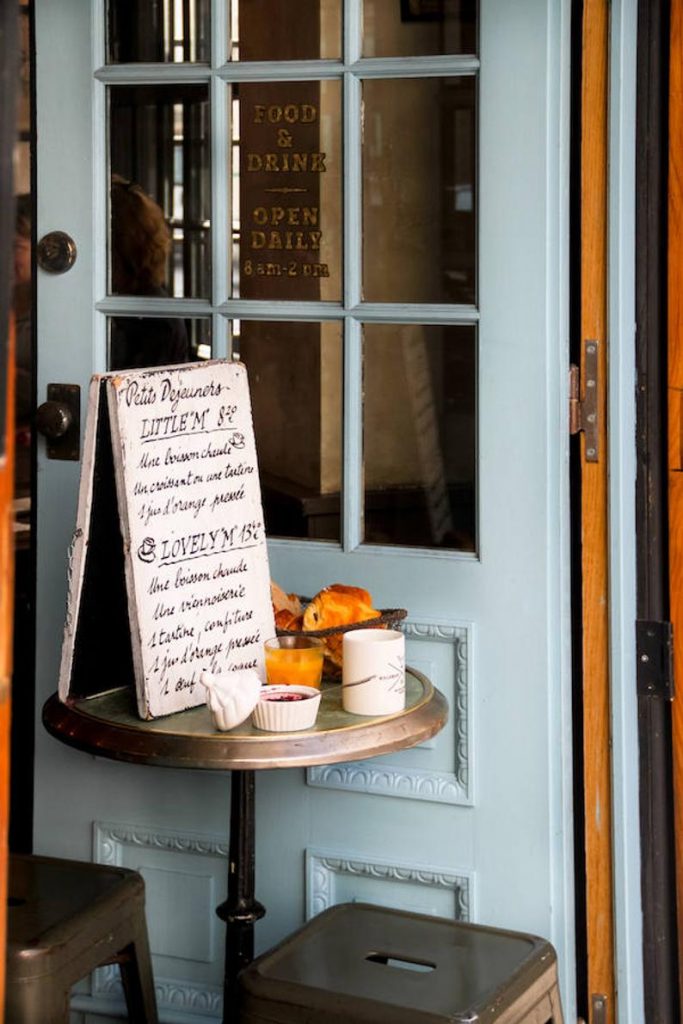 FOOD
&
DRINK
OPEN
DAILY
8am-2pm
Petits Dejeuners
LITTLE "M" 8€20
Une boisson chaude
Un croissant ou une tartine
1 jus d'orange pressée
LOVELY "M" 13€
Une boisson chaude
Une viennoiserie
1 tartine, confiture
1 jus d'orange pressée
1 œuf à la coque